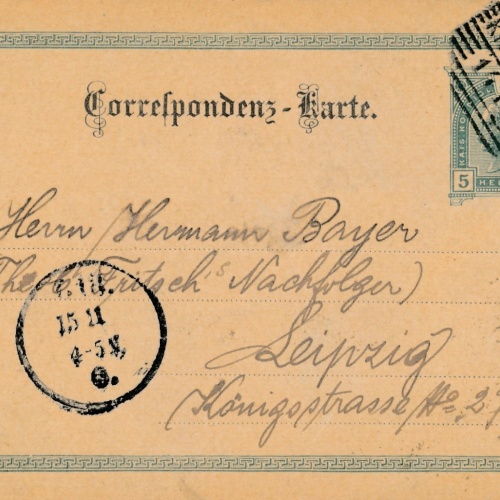 Correspondenz-Karte.
KAIS. KÖ
5 HE
Herrn Hermann Bayer
(Theod. Fritsch's Nachfolger)
15 11
4-5 N.
Leipzig
Königsstrasse No. 2